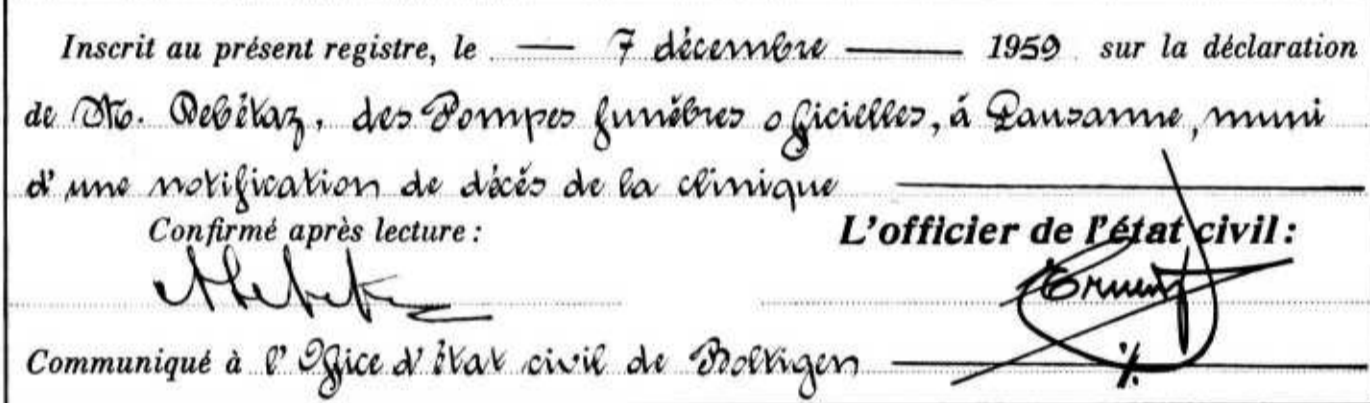 Inscrit au présent registre, le — 7 décembre — 1959 sur la déclaration
de M. Debétaz, des Pompes funèbres officielles, à Lausanne, muni
d'une notification de décès de la clinique —
Confirmé après lecture : L'officier de l'état civil :
Communiqué à l'Office d'état civil de Boltigen —